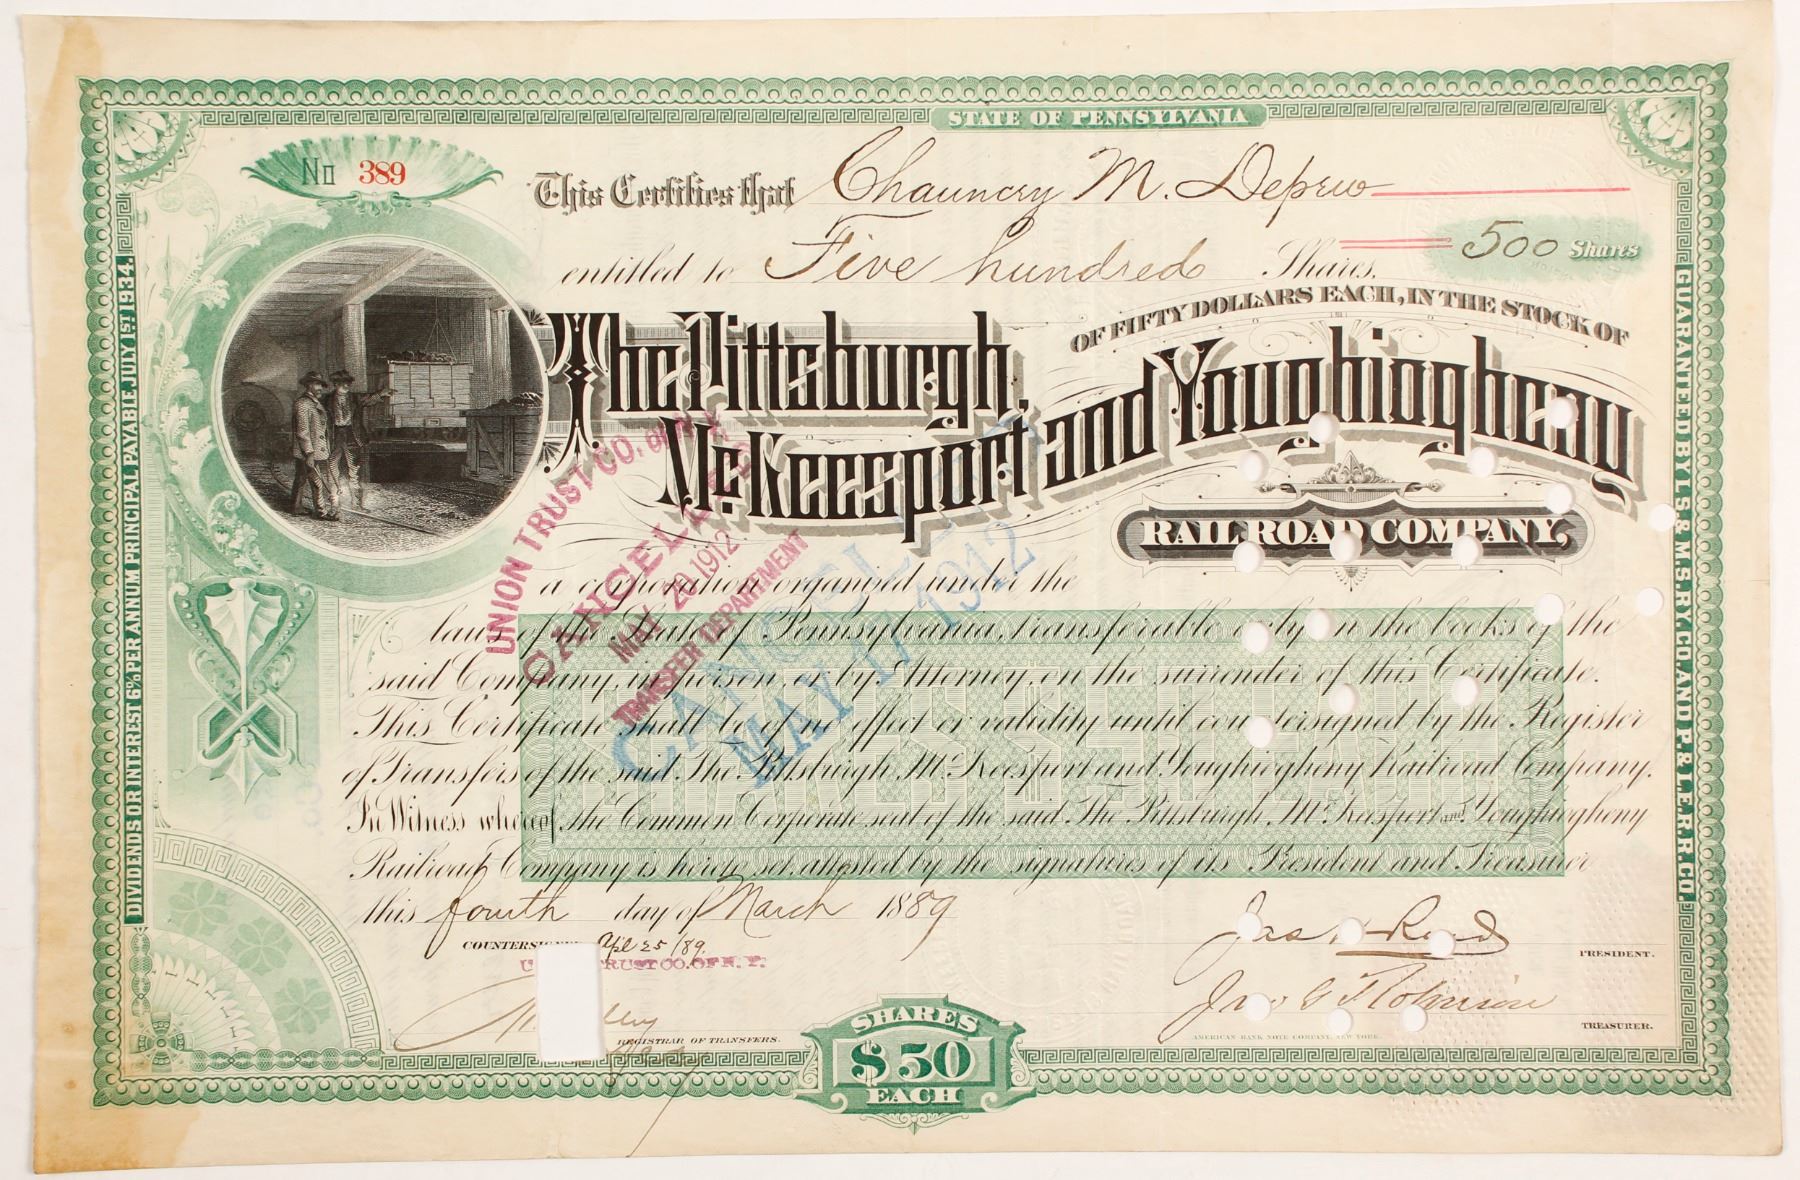 STATE OF PENNSYLVANIA
No 389
This Certifies that Chauncey M. Depew
entitled to Five hundred Shares. 500 Shares
OF FIFTY DOLLARS EACH, IN THE STOCK OF
The Pittsburgh, McKeesport and Youghiogheny
RAIL ROAD COMPANY,
a corporation organized under the
laws of the State of Pennsylvania, transferable only on the books of the
said Company, in person, or by Attorney, on the surrender of this Certificate.
This Certificate shall be of no effect or validity until countersigned by the Register
of Transfers of the said The Pittsburgh, McKeesport and Youghiogheny Railroad Company.
In Witness whereof, the Common Corporate seal of the said The Pittsburgh, McKeesport and Youghiogheny
Railroad Company is hereto set, attested by the signatures of its President and Treasurer
this fourth day of March 1889
COUNTERSIGNED Apl 25/89.
UNION TRUST CO. OF N. Y.
REGISTRAR OF TRANSFERS.
Jas. H. Reed
PRESIDENT.
Jno G Robinson
TREASURER.
AMERICAN BANK NOTE COMPANY, NEW YORK.
SHARES
$50
EACH
SHARES $50 EACH
DIVIDENDS OR INTEREST 6% PER ANNUM PRINCIPAL PAYABLE, JULY 1ST 1934.
GUARANTEED BY L.S. & M.S. RY. CO. AND P. & L.E. R.R. CO.
UNION TRUST CO. OF N.Y.
CANCELLED
MAY 20 1912
TRANSFER DEPARTMENT
CANCELLED
MAY 17 1912